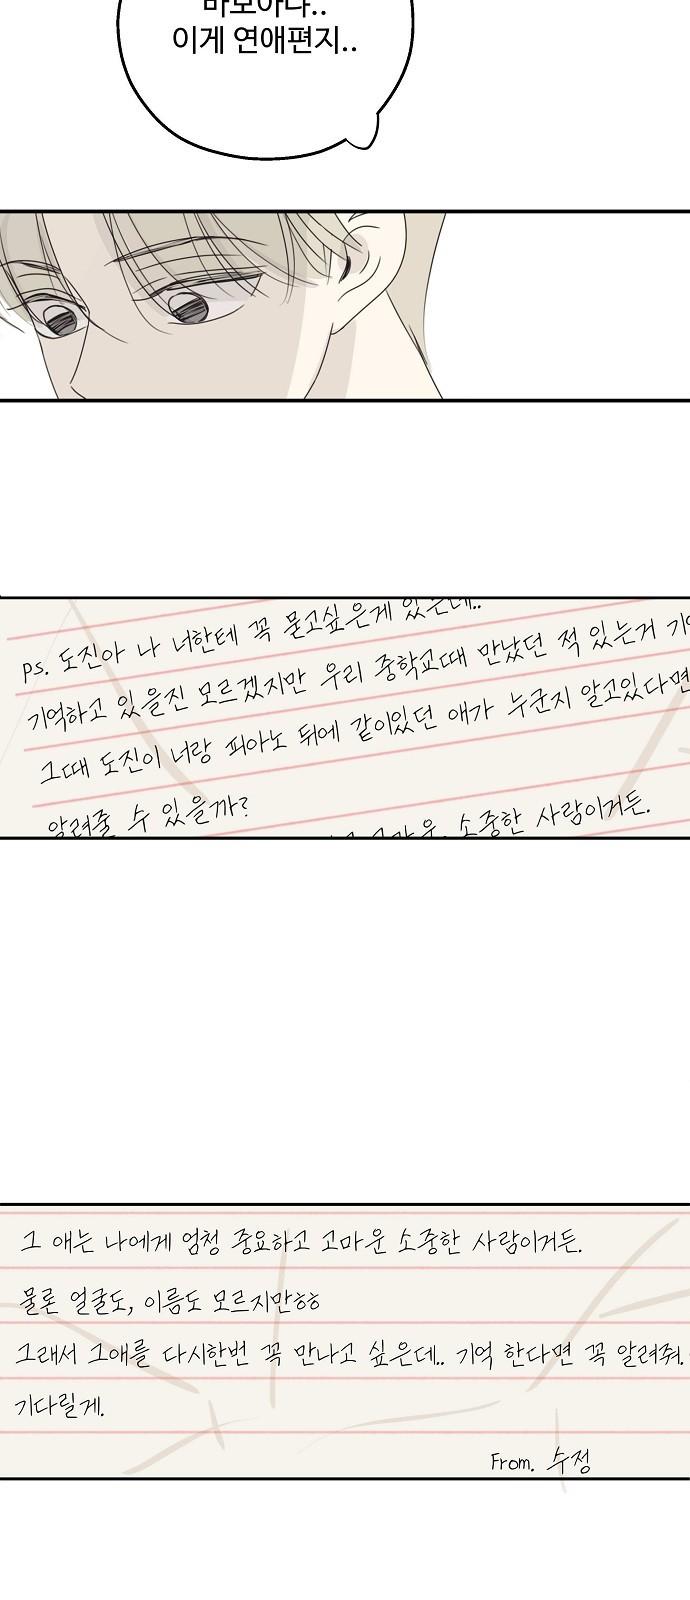 바보아냐..
이게 연애편지..
ps. 도진아 나 너한테 꼭 묻고싶은게 있는데..
기억하고 있을진 모르겠지만 우리 중학교때 만났던 적 있는거
그때 도진이 너랑 피아노 뒤에 같이있던 애가 누군지 알고있다면
알려줄 수 있을까?
고마운, 소중한 사람이거든.
그 애는 나에게 엄청 중요하고 고마운 소중한 사람이거든.
물론 얼굴도, 이름도 모르지만ㅎㅎ
그래서 그애를 다시한번 꼭 만나고 싶은데.. 기억 한다면 꼭 알려줘.
기다릴게.
From. 수정